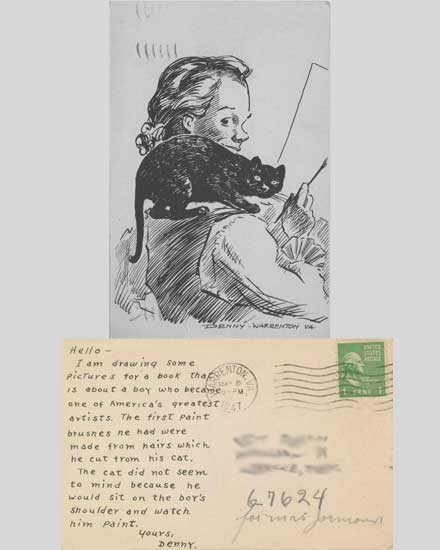 DENNY - WARRENTON VA.
Hello -
I am drawing some
pictures for a book that
is about a boy who became
one of America's greatest
artists. The first paint
brushes he had were
made from hairs which
he cut from his cat.
The cat did not seem
to mind because he
would sit on the boy's
shoulder and watch
him paint.
Yours,
Denny.
WARRENTON, VA.
MAY 6
PM
1947
UNITED STATES
POSTAGE
1 CENT 1
67624